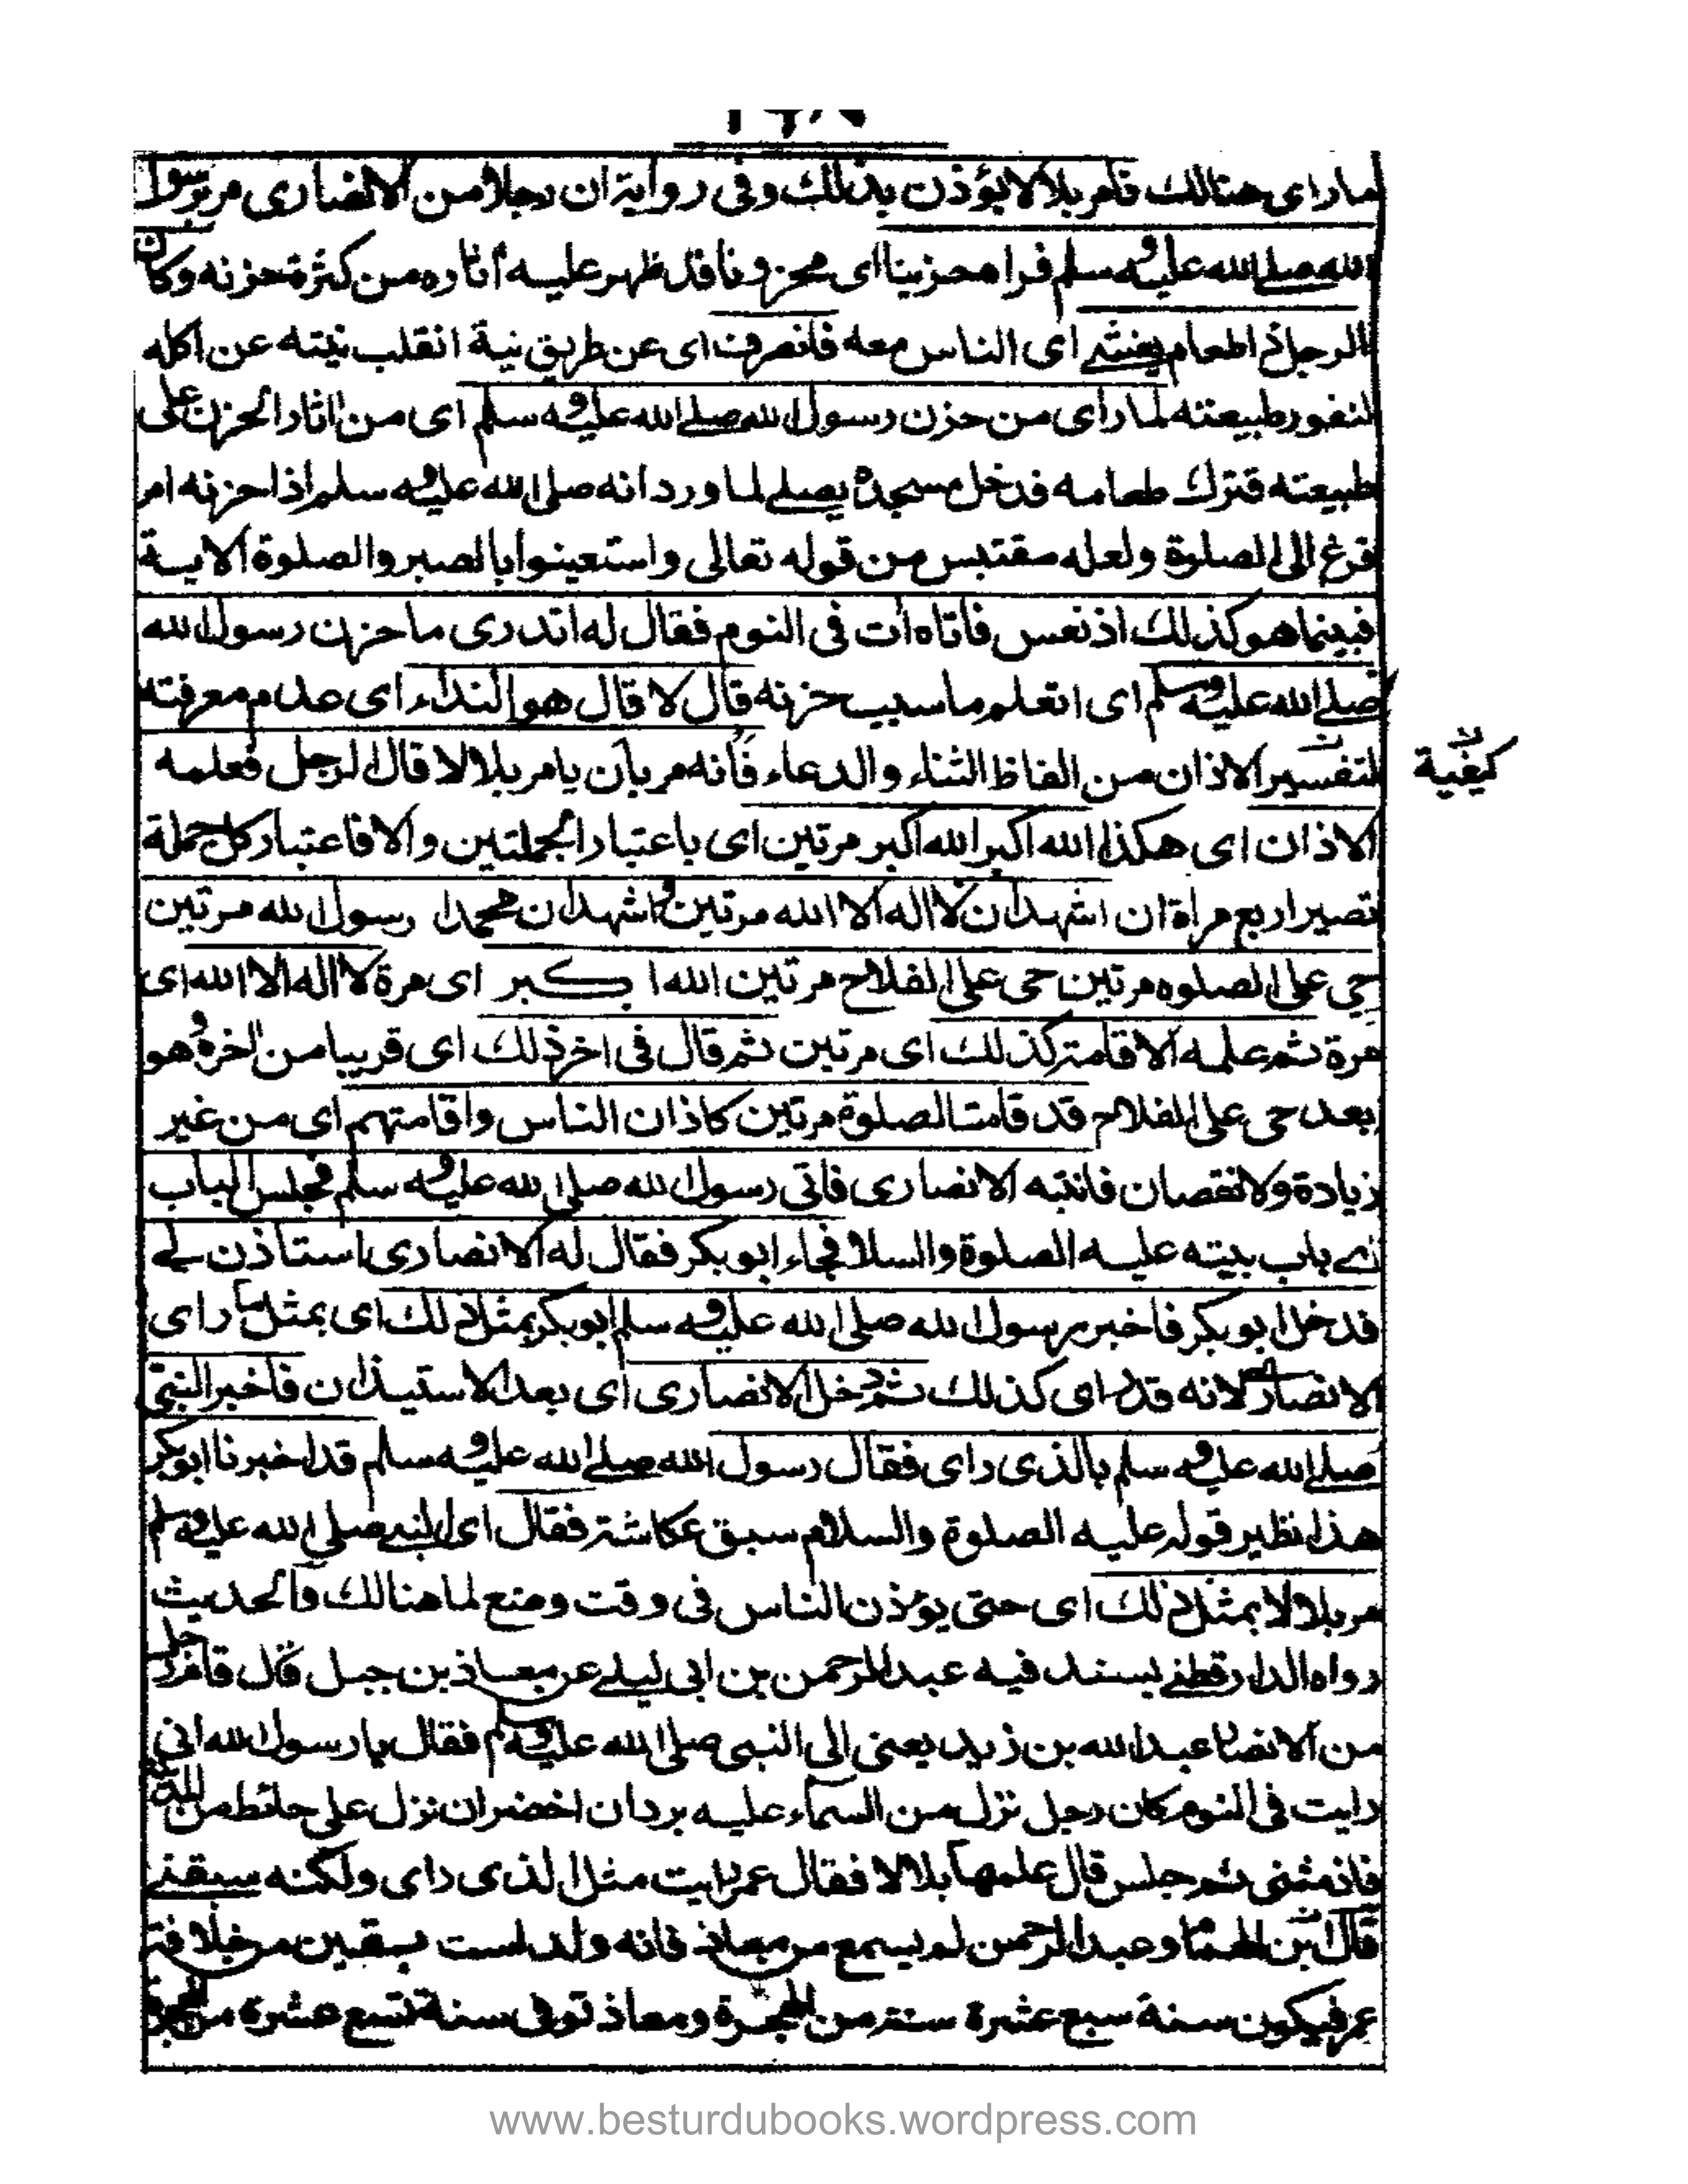 ما رأى هنالك فأمر بلالا يؤذن بذلك وفى رواية ان رجلا من الانصارى مر برسول
الله صلى الله عليه وسلم فراه محزينا اى محزونا قد ظهر عليه أثاره من كثرة حزنه وكان
الرجل اذا طعام يغشى اى الناس معه فانصرف اى عن طريق نية انقلب نيته عن اكله
لنفور طبيعته لما رأى من حزن رسول الله صلى الله عليه وسلم اى من اثار الحزن على
طبيعته فترك طعامه فدخل مسجده يصلى لما ورد انه صلى الله عليه وسلم اذا حزنه امر
فزغ الى الصلوة ولعله مقتبس من قوله تعالى واستعينوا بالصبر والصلوة الاية
فبينما هو كذلك اذ نعس فأتاه أت فى النوم فقال له اتدرى ما حزن رسول الله
صلى الله عليه وسلم اى اتعلم ما سبب حزنه قال لا قال هو النداء اى عدم معرفته
لتفسير الاذان من الفاظ الثناء والدعاء فأنه مر بأن يامر بلالا قال الرجل فعلمه
كيفية
الاذان اى هكذا الله اكبر الله اكبر مرتين اى باعتبار الجملتين والا فاعتبار كل جملة
تصير اربع مراة ان اشهد ان لا اله الا الله مرتين واشهد ان محمدا رسول الله مرتين
حي على الصلوه مرتين حى على الفلاح مرتين الله اكبر اى مرة لا اله الا الله اى
مرة ثم علمه الاقامة كذلك اى مرتين ثم قال فى اخر ذلك اى قريبا من اخره وهو
بعد حى على الفلاح قد قامت الصلوة مرتين كاذان الناس واقامتهم اى من غير
زيادة ولا نقصان فانتبه الانصارى فأتى رسول الله صلى الله عليه وسلم فجلس الباب
اے باب بيته عليه الصلوة والسلا فجاء ابو بكر فقال له الانصارى استاذن لے
فدخل ابو بكر فاخبر رسول الله صلى الله عليه وسلم ابو بكر بمثل ذلك اى بمثل ما راى
الانصارى لانه قد راى كذلك ثم دخل الانصارى أى بعد الاستيذان فأخبر النبى
صلى الله عليه وسلم بالذى راى فقال رسول الله صلى الله عليه وسلم قد اخبرنا ابو بكر
هذا نظير قوله عليه الصلوة والسلام سبق عكاشة فقال اى النبى صلى الله عليه وسلم
مر بلالا بمثل ذلك اى حتى يؤذن الناس فى وقت ومنع لما هنالك والحديث
رواه الدارقطنے بسند فيه عبد الرحمن بن ابى ليلے عن معاذ بن جبل قال قام رجل
من الانصار عبد الله بن زيد يعنى الى النبى صلى الله عليه وسلم فقال يا رسول الله انى
رايت فى النوم كان رجل نزل من السماء عليه بردان اخضران نزل على حائط من المدينة
فاذن مثنى ثم جلس قال علمها بلالا فقال عمر رايت مثل الذى راى ولكنه سبقنے
قال ابن الهمام وعبد الرحمن لم يسمع من معاذ فانه ولد لست بقين من خلافة
عمر فيكون سنة سبع عشرة سنة من الهجرة ومعاذ توفى سنة تسع عشرة من الهجرة
www.besturdubooks.wordpress.com